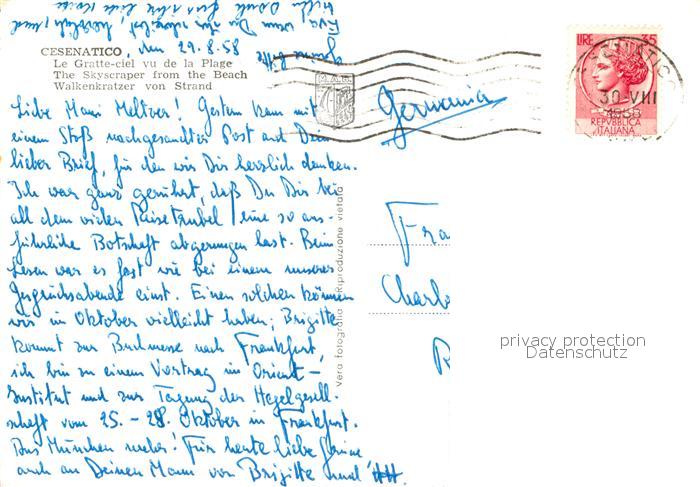 CESENATICO, den 29.8.58
Le Gratte-ciel vu de la Plage
The Skyscraper from the Beach
Walkenkratzer von Strand
Liebe Mami Meltzer! Gestern kam mit
einem Stoß nachgesandter Post auch Dein
lieber Brief, für den wir Dir herzlich danken.
Ich war ganz gerührt, daß Du Dir bei
all dem vielen Reisetrubel eine so aus-
führliche Botschaft abgerungen hast. Beim
Lesen war es fast wie bei einem unserer
Gesprächsabende einst. Einen solchen können
wir in Oktober vielleicht haben; Brigitte
kommt zur Buchmesse nach Frankfurt,
ich bin zu einem Vortrag im Orient-
Institut und zur Tagung der Hegelgesell-
schaft vom 25. - 28. Oktober in Frankfurt.
Aus München mehr! Für heute liebe Grüße
auch an Deinen Mann von Brigitte und HH.
Vera fotografia
Riproduzione vietata
M.A.B.
Germania
Fra
Charl
LIRE 35
REPVBBLICA
ITALIANA
CESENATICO
30-VIII
1958
privacy protection
Datenschutz